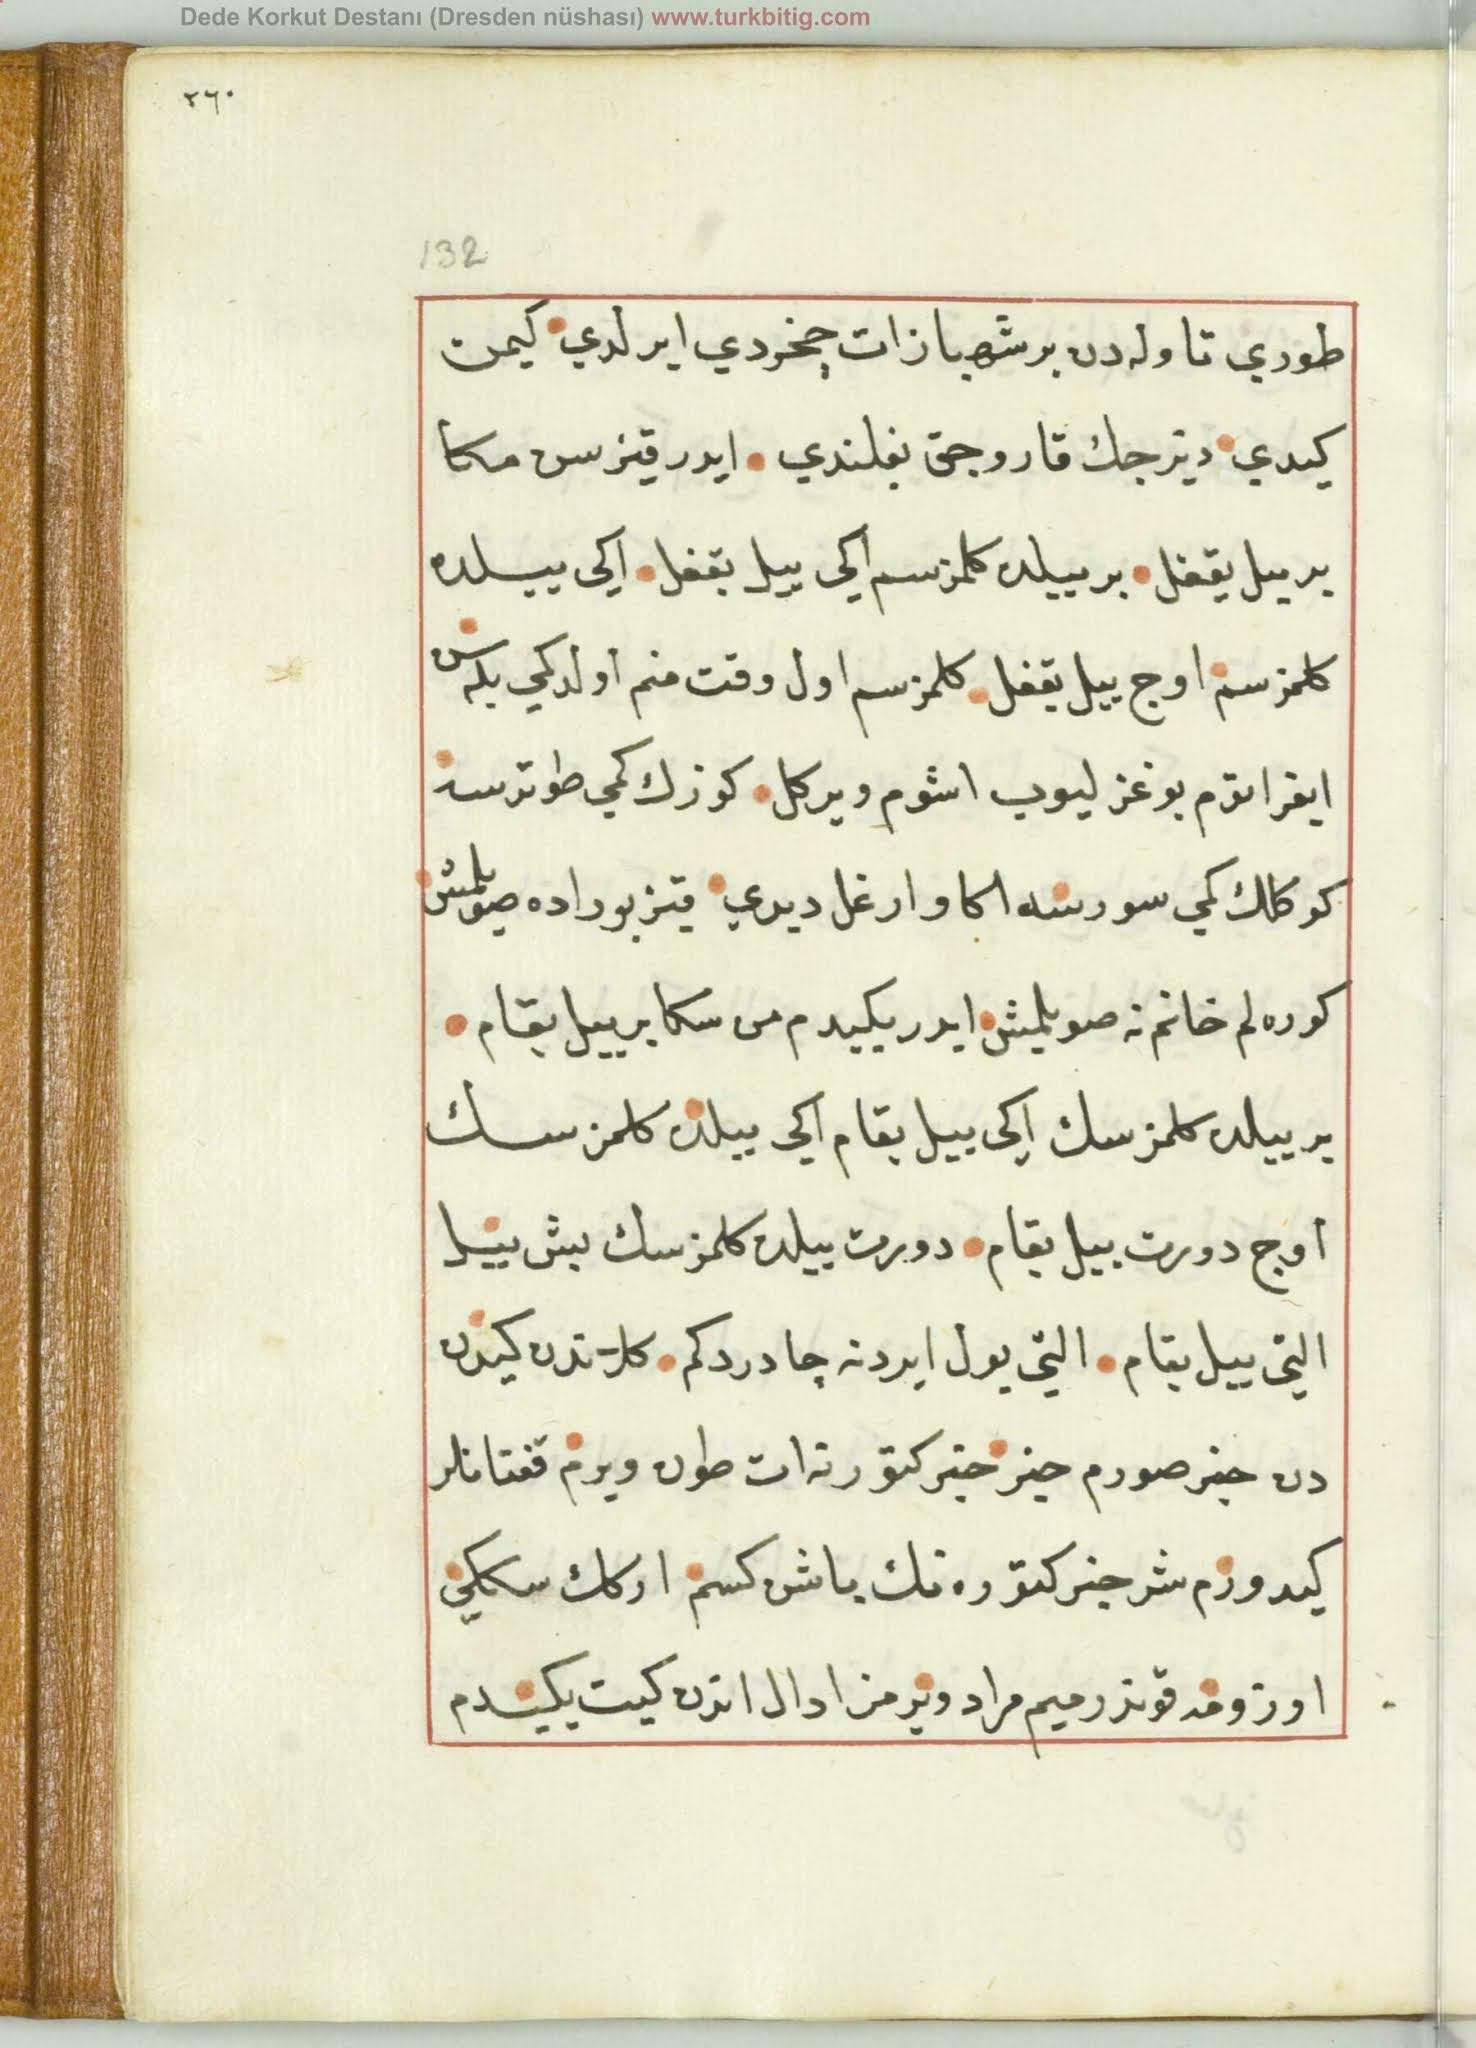 Dede Korkut Destanı (Dresden nüshası) www.turkbitig.com
٢٦٠
132
طوري تاوله دن بر شهباز ات چخردي ايرلدي كيمن
كيدي ديزجك قاروجق بغلندي ايدر قيز سن مكا
بر ييل بقغل بر ييلده كلمز سم اكي ييل بقغل اكي ييلده
كلمز سم اوچ ييل بقغل كلمز سم اول وقت منم اولدكمي بله سن
ايغر اتوم بوغزليوب اشوم ويركل كوزك كمي طوترسه
كوكلك كمي سورسه اكا وارغل ديدي قيز بوراده صويلمش
كوره لم خانم نه صويلمش ايدر يكيدم من سكا بر ييل بقام
بر ييلده كلمز سك اكي ييل بقام اكي ييلده كلمز سك
اوچ دورت ييل بقام دورت ييلده كلمز سك بيش ييل
التي ييل بقام التي يول ايردنه چادر دكم كلندن كيدن
دن خبر صورم خير خبر كتورنه ات طون ويرم قفتانلر
كيدورم شر خبر كتوره نك باشن كسم اركك سككي
اوزومه قوندرميم مراد وير مراد ال اندن كيت يكيدم